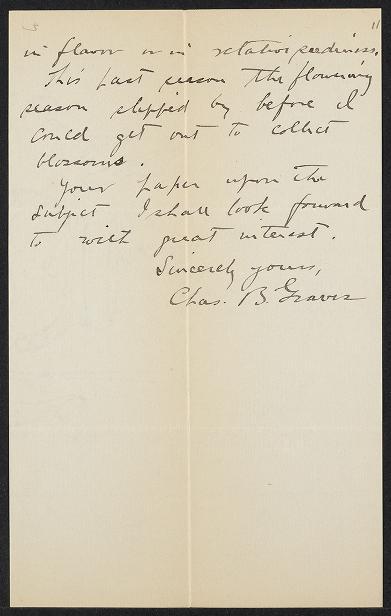 11
in flavor or in relative seediness.
This past season the flowering
season slipped by before I
could get out to collect
blossoms.
Your paper upon the
subject I shall look forward
to with great interest.
Sincerely yours,
Chas. B. Graves